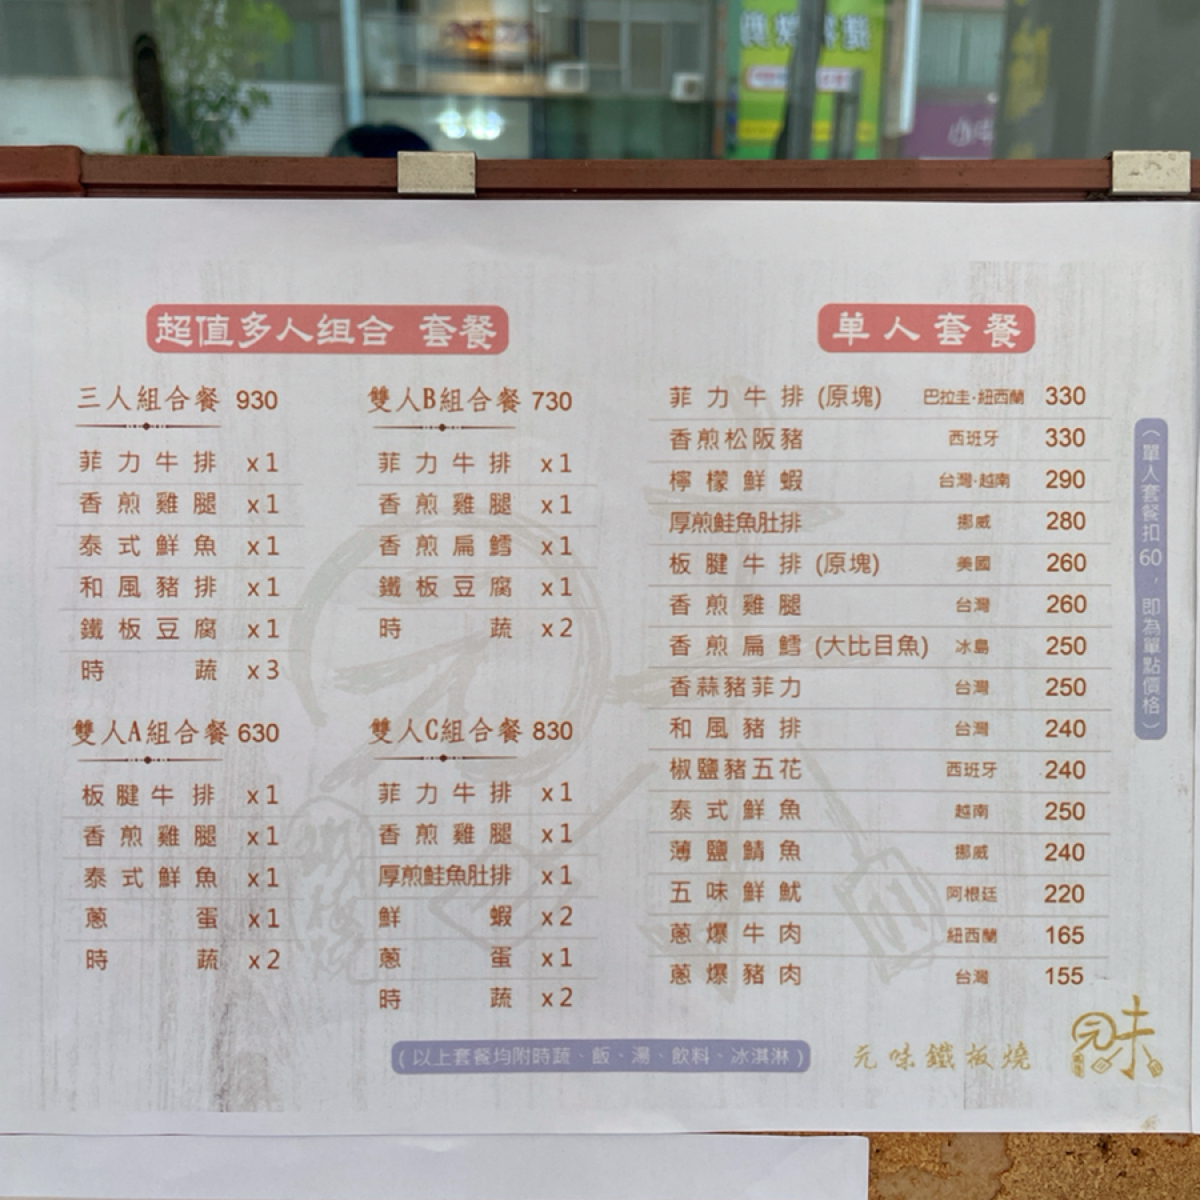 超值多人组合 套餐
三人組合餐 930
菲力牛排 x1
香煎雞腿 x1
泰式鮮魚 x1
和風豬排 x1
鐵板豆腐 x1
時蔬 x3
雙人B組合餐 730
菲力牛排 x1
香煎雞腿 x1
香煎扁鱈 x1
鐵板豆腐 x1
時蔬 x2
雙人A組合餐 630
板腱牛排 x1
香煎雞腿 x1
泰式鮮魚 x1
蔥蛋 x1
時蔬 x2
雙人C組合餐 830
菲力牛排 x1
香煎雞腿 x1
厚煎鮭魚肚排 x1
鮮蝦 x2
蔥蛋 x1
時蔬 x2
单人套餐
菲力牛排 (原塊) 巴拉圭·紐西蘭 330
香煎松阪豬 西班牙 330
檸檬鮮蝦 台灣·越南 290
厚煎鮭魚肚排 挪威 280
板腱牛排 (原塊) 美國 260
香煎雞腿 台灣 260
香煎扁鱈 (大比目魚) 冰島 250
香蒜豬菲力 台灣 250
和風豬排 台灣 240
椒鹽豬五花 西班牙 240
泰式鮮魚 越南 250
薄鹽鯖魚 挪威 240
五味鮮魷 阿根廷 220
蔥爆牛肉 紐西蘭 165
蔥爆豬肉 台灣 155
(單人套餐扣60，即為單點價格)
(以上套餐均附時蔬、飯、湯、飲料、冰淇淋)
元味鐵板燒
元味